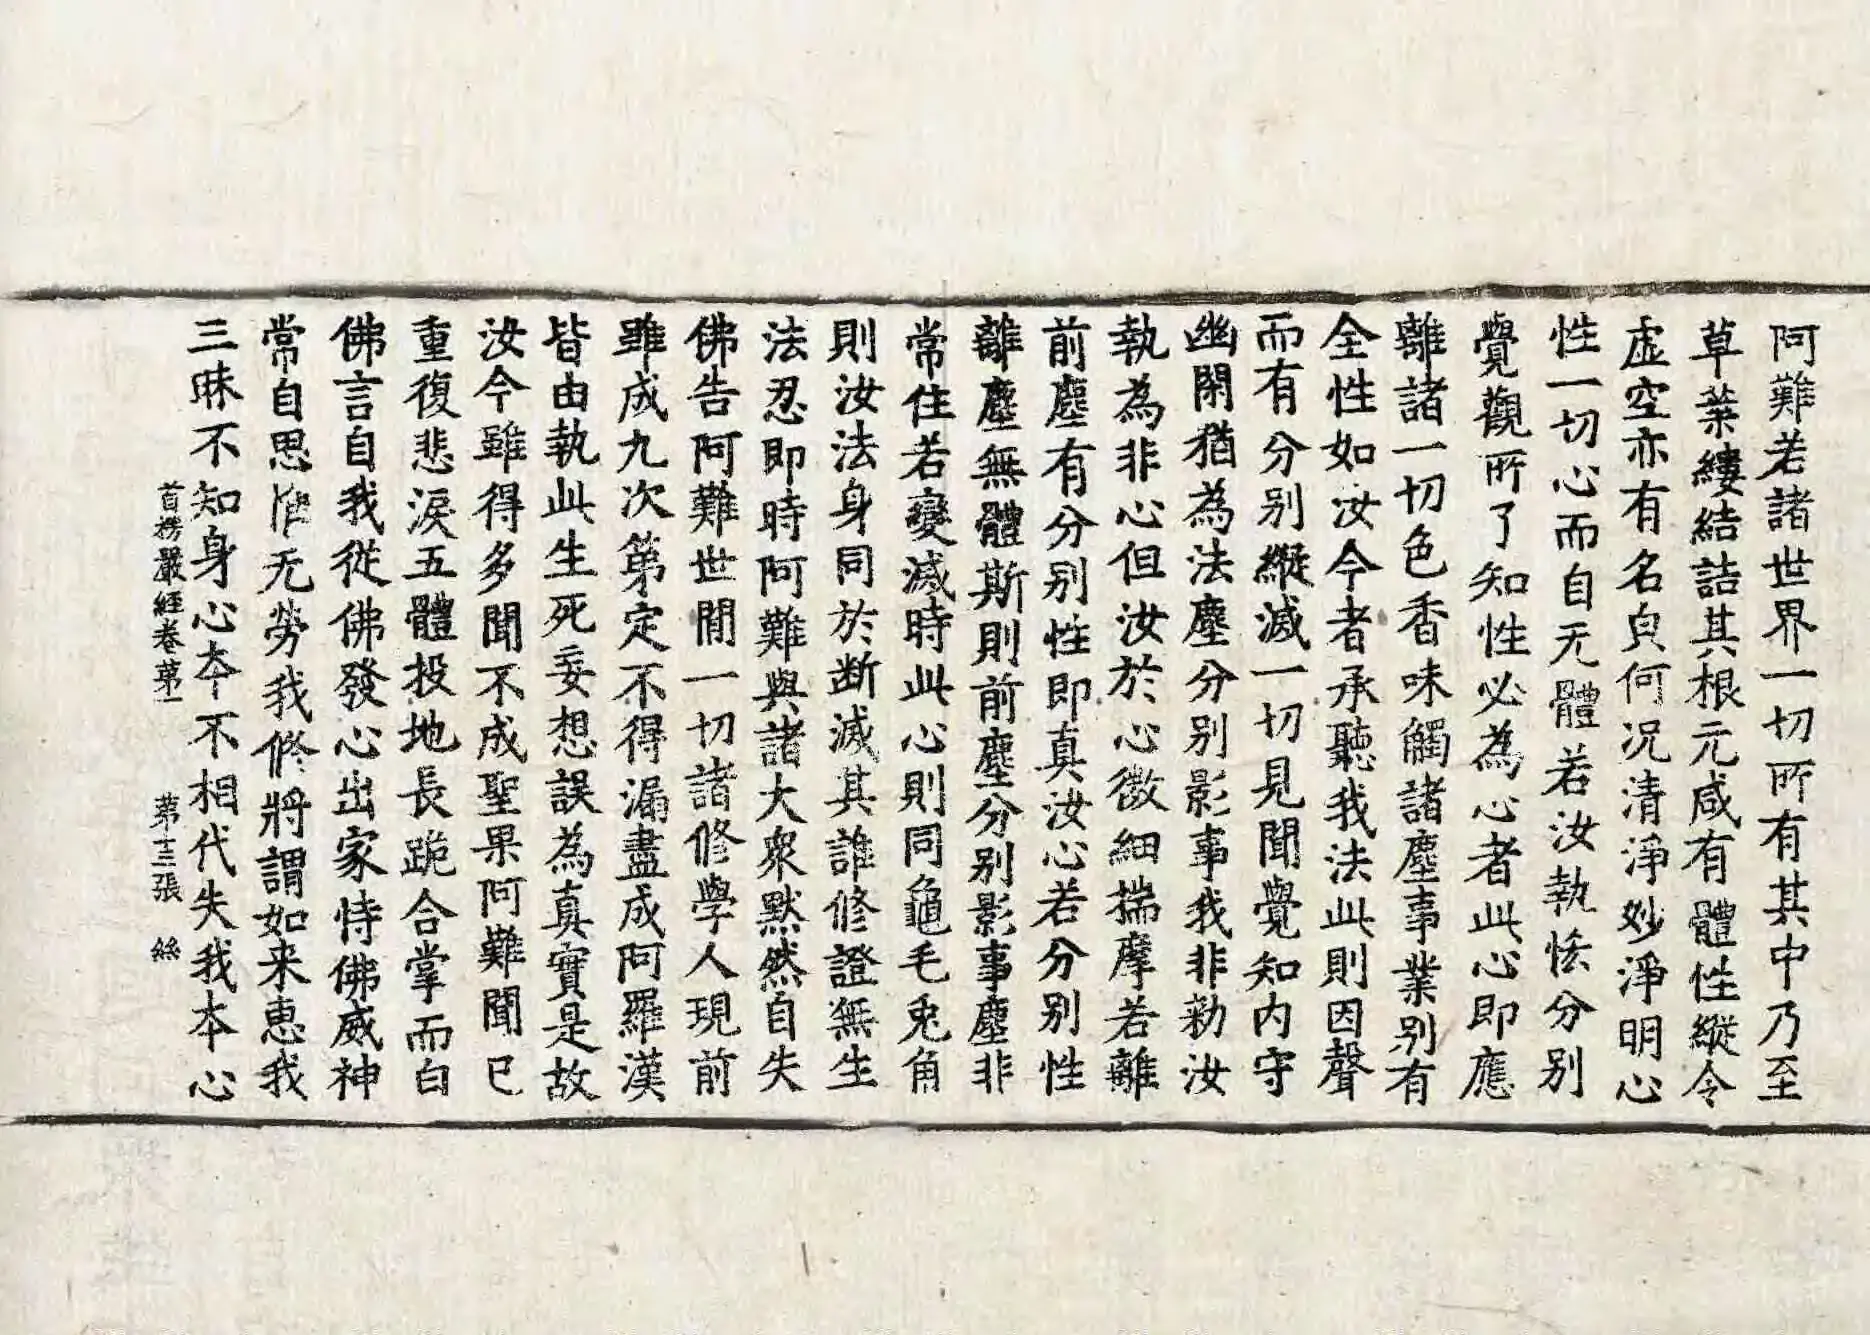 阿難若諸世界一切所有其中乃至
草葉縷結詰其根元咸有體性縱令
虛空亦有名皃何况清淨妙淨明心
性一切心而自无體若汝執恡分別
覺觀所了知性必為心者此心即應
離諸一切色香味觸諸塵事業別有
全性如汝今者承聽我法此則因聲
而有分別縱滅一切見聞覺知內守
幽閑猶為法塵分別影事我非勑汝
執為非心但汝於心微細揣摩若離
前塵有分別性即真汝心若分別性
離塵無體斯則前塵分別影事塵非
常住若變滅時此心則同龜毛兎角
則汝法身同於断滅其誰修證無生
法忍即時阿難與諸大衆默然自失
佛告阿難世間一切諸修學人現前
雖成九次第定不得漏盡成阿羅漢
皆由執此生死妄想誤為真實是故
汝今雖得多聞不成聖果阿難聞已
重復悲淚五體投地長跪合掌而白
佛言自我從佛發心出家恃佛威神
常自思惟无勞我修將謂如来惠我
三昧不知身心夲不相代失我夲心
首楞嚴経卷苐一 苐十三張 絲